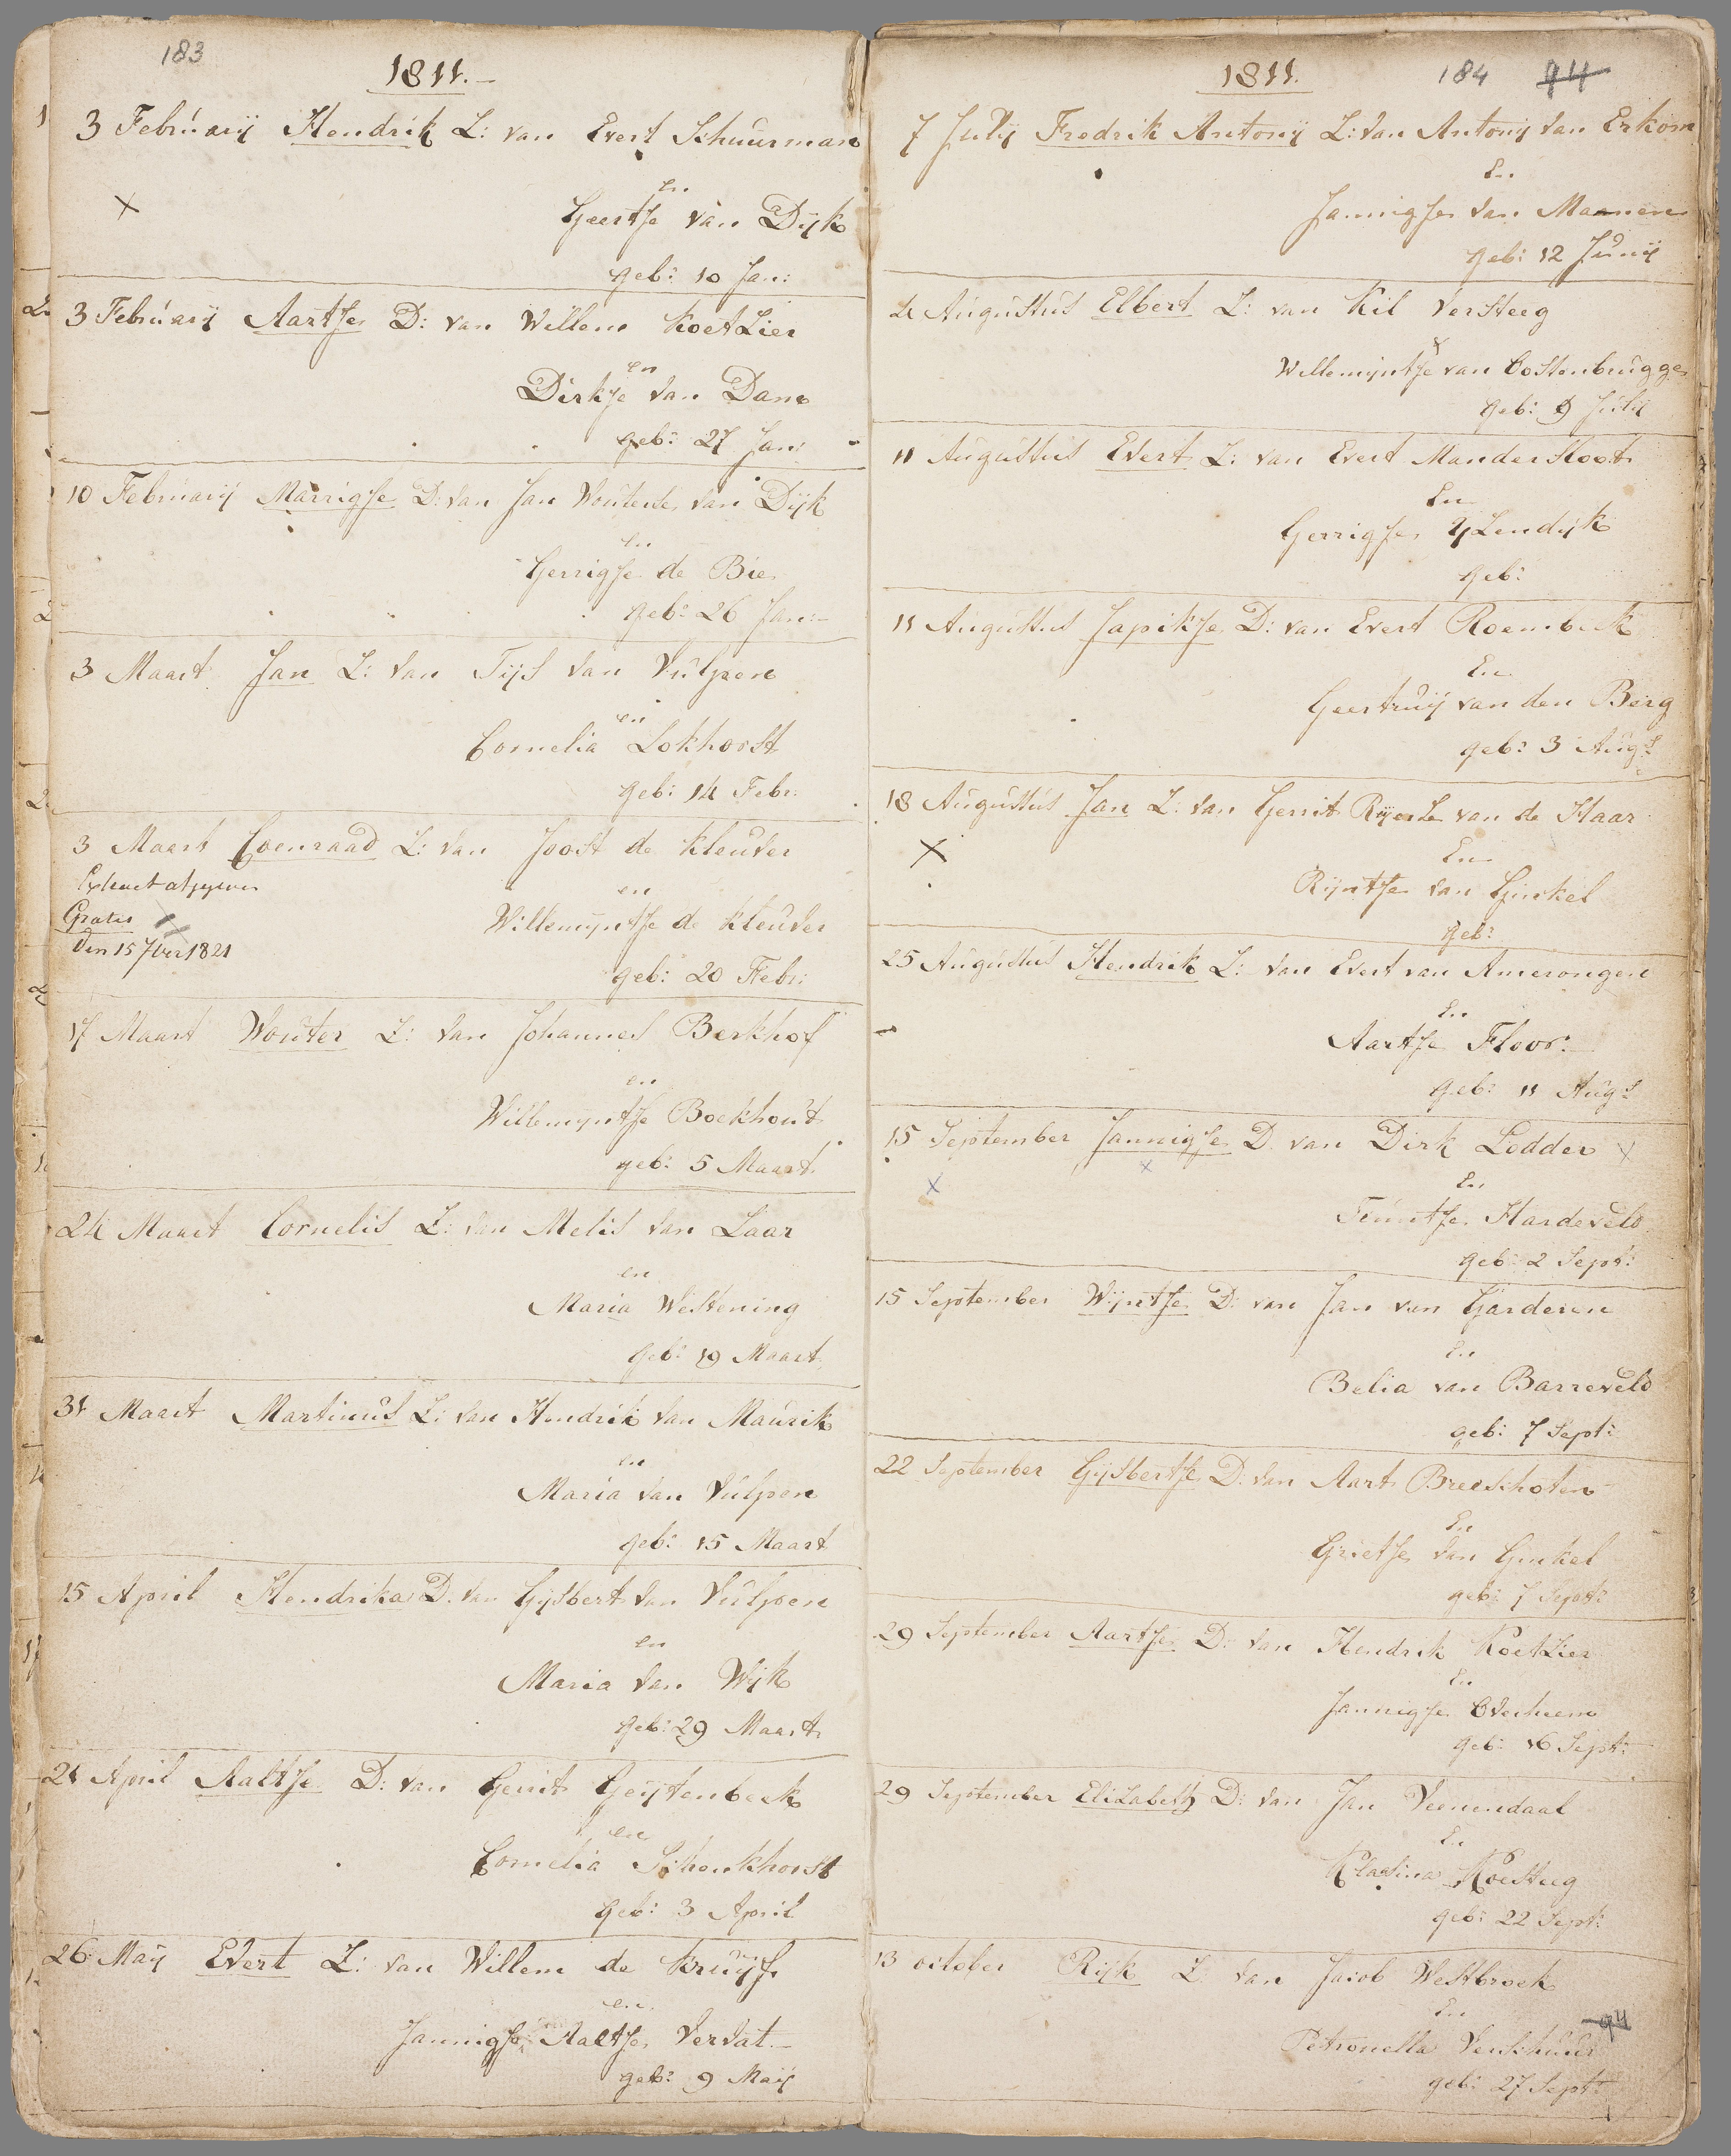 183
1811.-
3 Februarij Hendrik Z: van Evert Schuurman
en
Geertje van Dijk
geb: 10 Jan:
3 Februarij Aartje D: van Willem Koetzier
en
Dirkje van Dam
geb: 27 Jan:
10 Februarij Marrigje D: van Jan Wouterse van Dijk
en
Gerrigje de Bie
geb: 26 Jan:
3 Maart Jan Z: van Tijs van Vulpen
en
Cornelia Lokhorst
geb: 14 Febr:
3 Maart Coenraad Z: van Joost de Kleuver
Extract afgegeven
en
Gratis
Willemijntje de Kleuver
den 15 7ber 1821
geb: 20 Febr:
17 Maart Wouter Z: van Johannes Berkhof
en
Willemijntje Boekhout
geb: 5 Maart
24 Maart Cornelis Z: van Melis van Laar
en
Maria Westening
geb: 19 Maart
31 Maart Martinus Z: van Hendrik van Maurik
en
Maria van Vulpen
geb: 15 Maart
15 April Hendrika D. van Gijsbert van Vulpen
en
Maria van Wijk
geb: 29 Maart
21 April Aaltje D: van Gerrit Geijtenbeek
en
Cornelia Schonkhorst
geb: 3 April
26 Maij Evert Z: van Willem de Kruijf
en
Jannigje Aaltje Vervat.-
geb: 9 Maij
1811.
184 94
7 Julij Fredrik Antonij Z: van Antonij van Erkom
En
Jannigje van Maanen
geb: 12 Junij
4 Augustus Elbert Z: van Kil Versteeg
Willemijntje van Oostenbrugge
geb: 9 Julij
11 Augustus Evert Z: van Evert Mandersloot
En
Gerrigje IJzendijk
geb:
11 Augustus Japikje D: van Evert Roembeek
En
Geertruij van den Berg
geb: 3 Augs
18 Augustus Jan Z: van Gerrit Rijerse van de Haar
En
Rijntje van Ginkel
geb:
25 Augustus Hendrik Z: van Evert van Amerongen
En
Aartje Floor.
geb: 11 Augs
15 September Jannigje D van Dirk Lodder
En
Teuntje Hardeveld
geb: 2 Sept:
15 September Wijntje D: van Jan van Garderen
En
Belia van Barreveld
geb: 7 Sept:
22 September Gijsbertje D: van Aart Breeschoten
En
Grietje van Ginkel
geb: 7 Sept:
29 September Aartje D: van Hendrik Koetzier
En
Jannigje Overheem
geb: 16 Sept:
29 September Elizabeth D: van Jan Veenendaal
En
Klasina Roesteeg
geb: 22 Sept:
13 october Rijk Z van Jacob Westbroek
En
94
Petronella Verschuur
geb: 27 Sept: